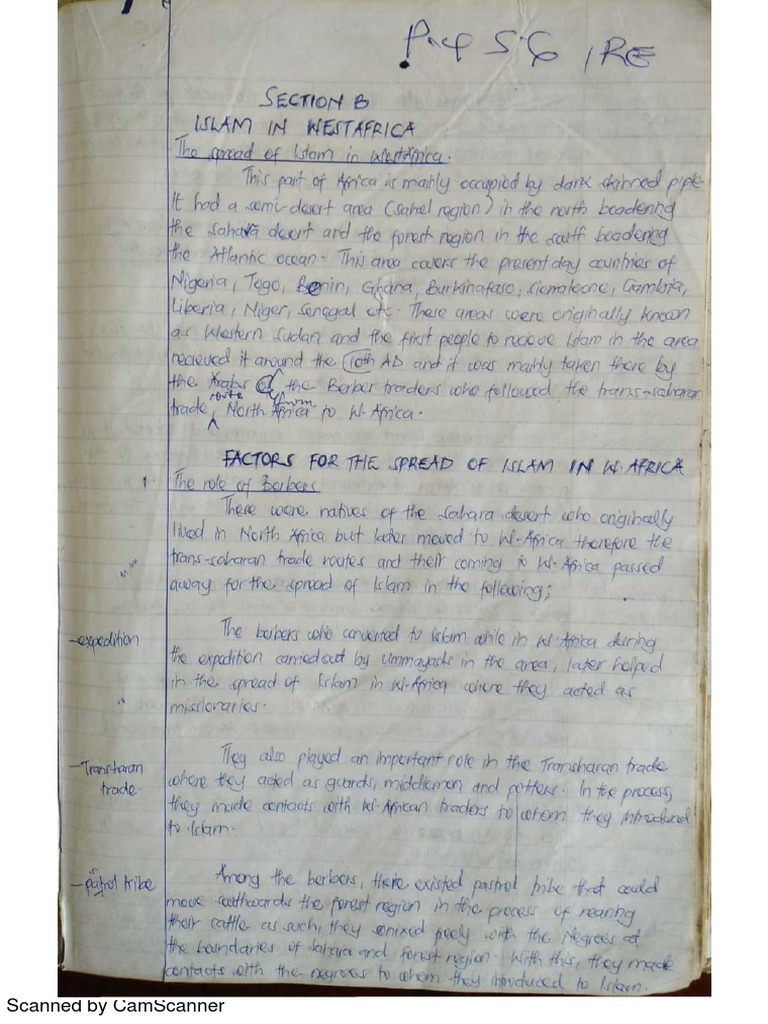 S.6 IRE
SECTION B
ISLAM IN WESTAFRICA
The spread of Islam in WestAfrica.
This part of Africa is mainly occupied by dark skinned piple
It had a semi-desert area (sahel region) in the north boadering
the sahara desert and the forest region in the south boadering
the Atlantic ocean. This area covers the present day countries of
Nigeria, Togo, Benin, Ghana, Burkinafaso, sierraleone, Gambia,
Liberia, Niger, Senegal etc. These areas were originally known
as Western Sudan and the first people to recieve Islam in the area
recieved it around the 10th AD and it was mainly taken there by
the Arabs the Berber traders who followed the trans-saharan
route from
trade, North Africa to W.Africa.
FACTORS FOR THE SPREAD OF ISLAM IN W.AFRICA
1. The role of Berbers
These were natives of the sahara desert who originally
lived in North Africa but later moved to W.Africa therefore the
trans-saharan trade routes and their coming to W.Africa passed
away for the spread of Islam in the following;
-expedition
The berbers who converted to Islam while in W.Africa during
the expedition carried out by Ummayads in the area, later helped
in the spread of Islam in W.Africa where they acted as
missionaries.
-Transharan
trade.
They also played an important role in the Transharan trade
where they acted as guards, middlemen and potters. In the process,
they made contacts with W.African traders to whom they introduced
to Islam.
-patrol tribe
Among the berbers, there existed pastrol tribe that could
move southwards the forest region in the process of rearing
their cattle as such, they with the Negroes at
the boundaries of sahara and forest region. With this, they made
contacts with the negroes to whom they introduced to Islam.
Scanned by CamScanner